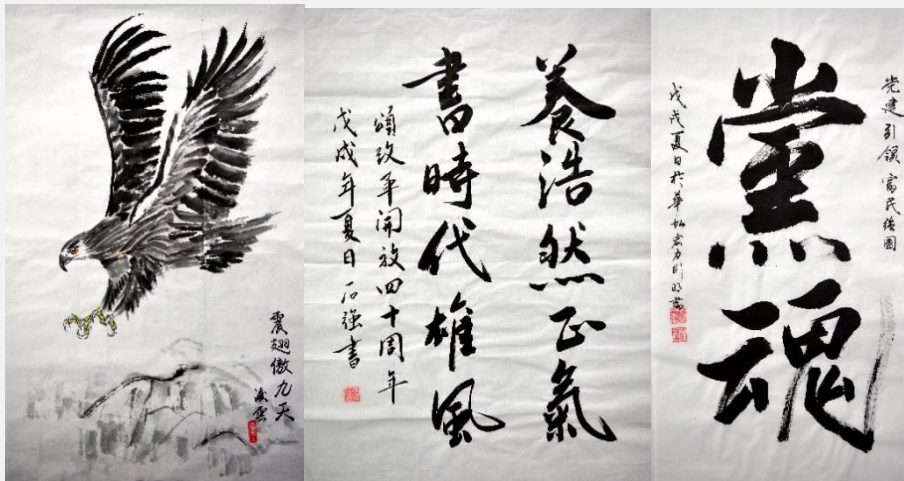 震翅傲九天
凌雲
養浩然正氣
書時代雄風
頌改革開放四十周年
戊戌年夏日石強書
党建引領富民強國
黨魂
戊戌夏日於華